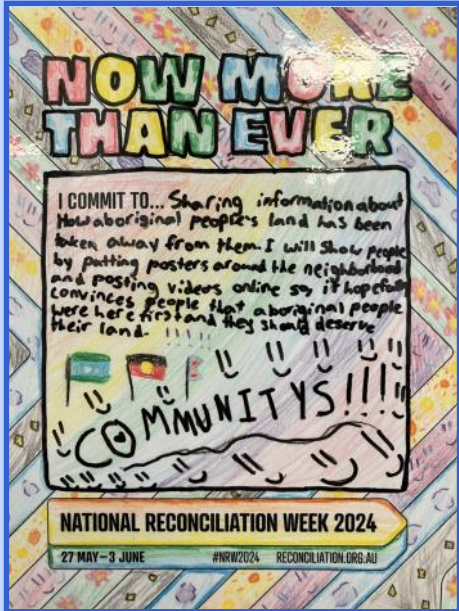 NOW MORE
THAN EVER
I COMMIT TO... Sharing information about
How aboriginal people's land has been
taken away from them. I will show people
by putting posters around the neighborhood
and posting videos online so, it hopefully
convinces people that aboriginal people
were here first and they should deserve
their land.
COMMUNITYS!!!!
NATIONAL RECONCILIATION WEEK 2024
27 MAY–3 JUNE #NRW2024 RECONCILIATION.ORG.AU